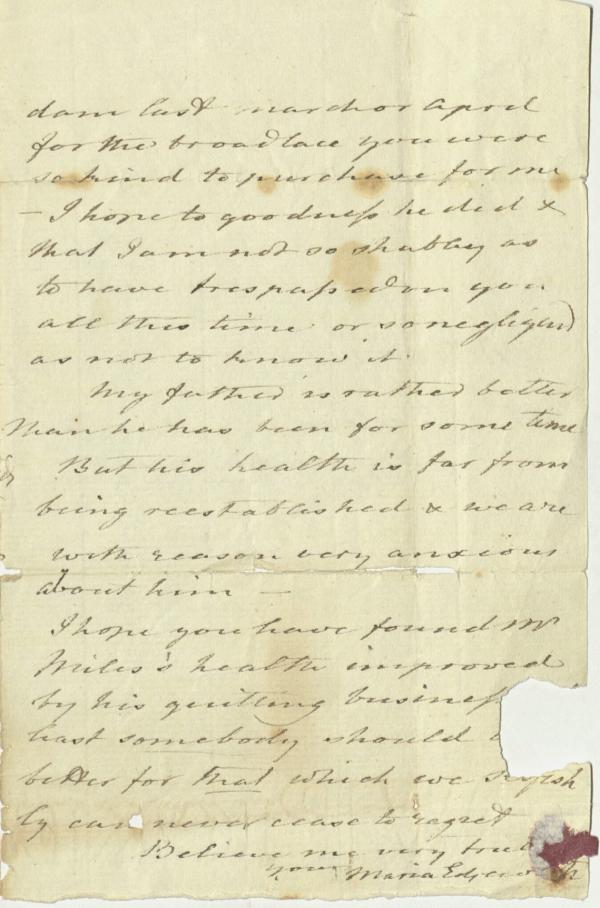 dam last march or April
for the broad lace you were
so kind to purchase for me
— I hope to goodness he did &
that I am not so shabby as
to have trespassed on you
all this time or so negligent
as not to know it.
My father is rather better
than he has been for some time
But his health is far from
being reestablished & we are
with reason very anxious
about him —
I hope you have found Mr
Miles's health improved
by his quitting business
least somebody should
better for that which we selfish
ly can never cease to regret
Believe me very
yours Maria